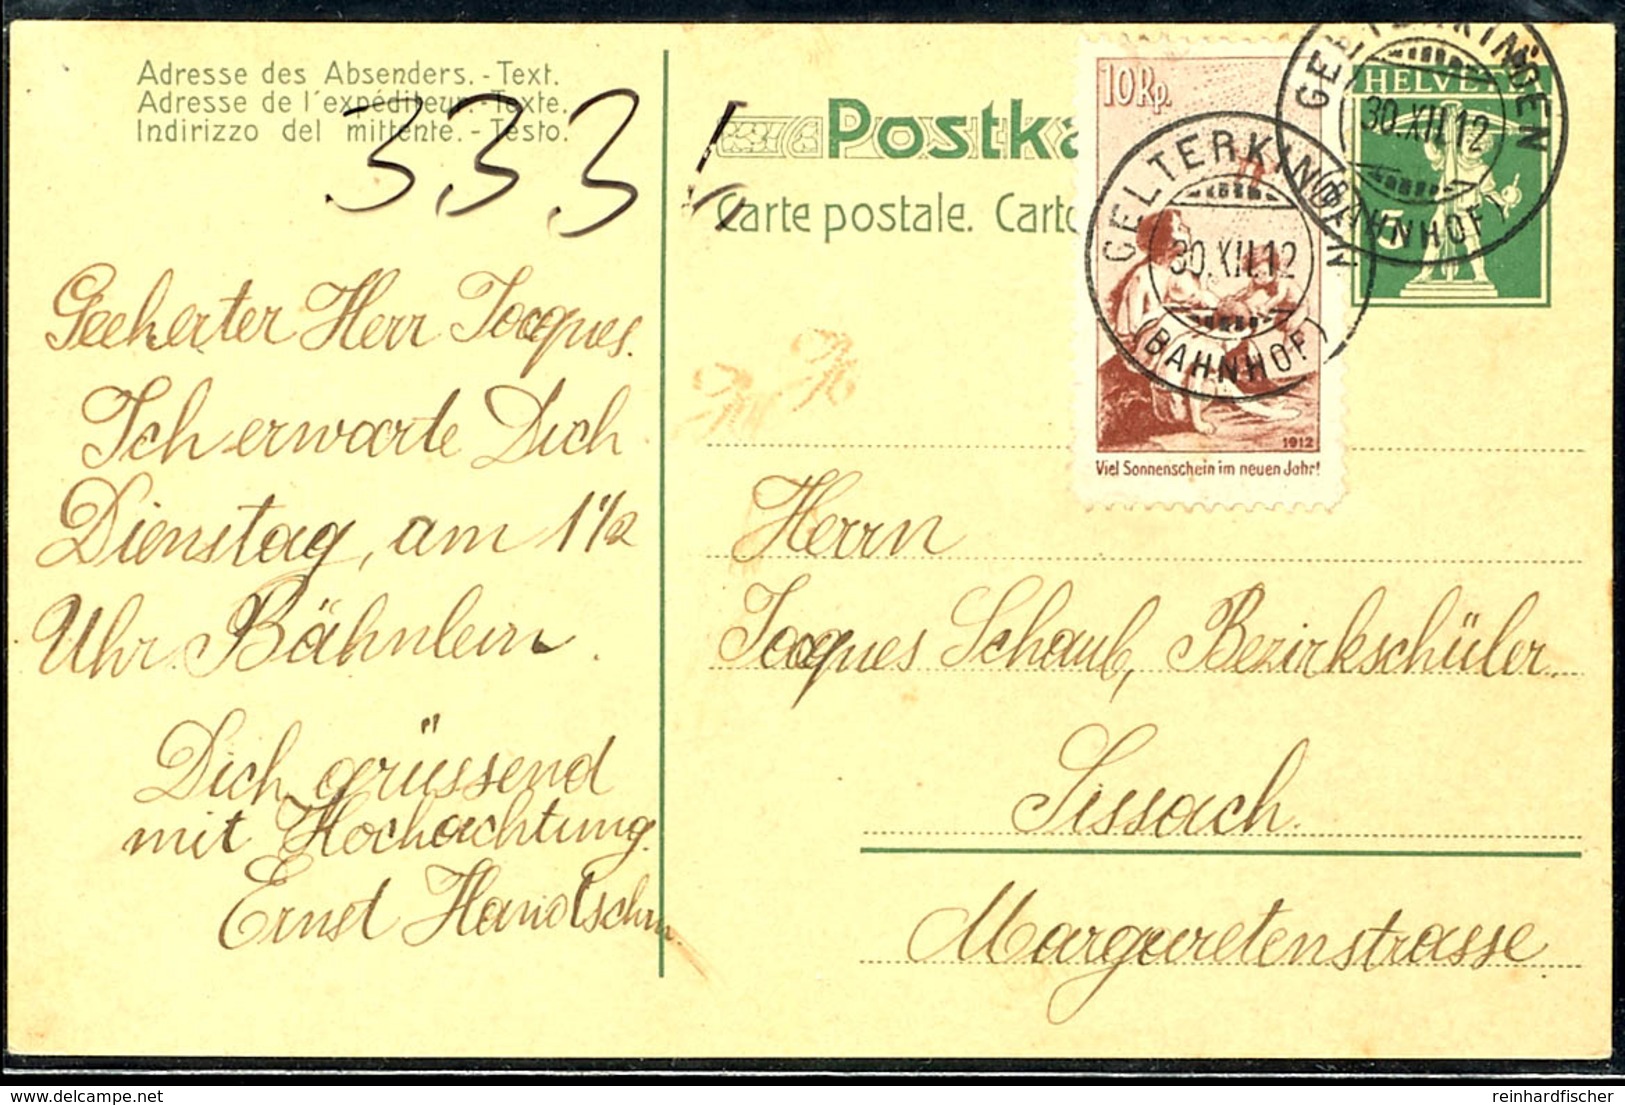 Adresse des Absenders. - Text.
Adresse de l'expéditeur. - Texte.
Indirizzo del mittente. - Testo.
333
Geeherter Herr Jacques.
Ich erwarte Dich
Dienstag, am 1 1/2
Uhr Bähnlein.
Dich grüssend
mit Hochachtung.
Ernst Handschin.
Postka
Carte postale. Carto
10 Rp.
1912
Viel Sonnenschein im neuen Jahr!
GELTERKINDEN
30.XII.12
(BAHNHOF)
HELVETI
5
GELTERKINDEN
30.XII.12
(BAHNHOF)
Herrn
Jacques Schaub, Bezirksschüler.
Sissach.
Margaretenstrasse
www.delcampe.net
reinhardfischer